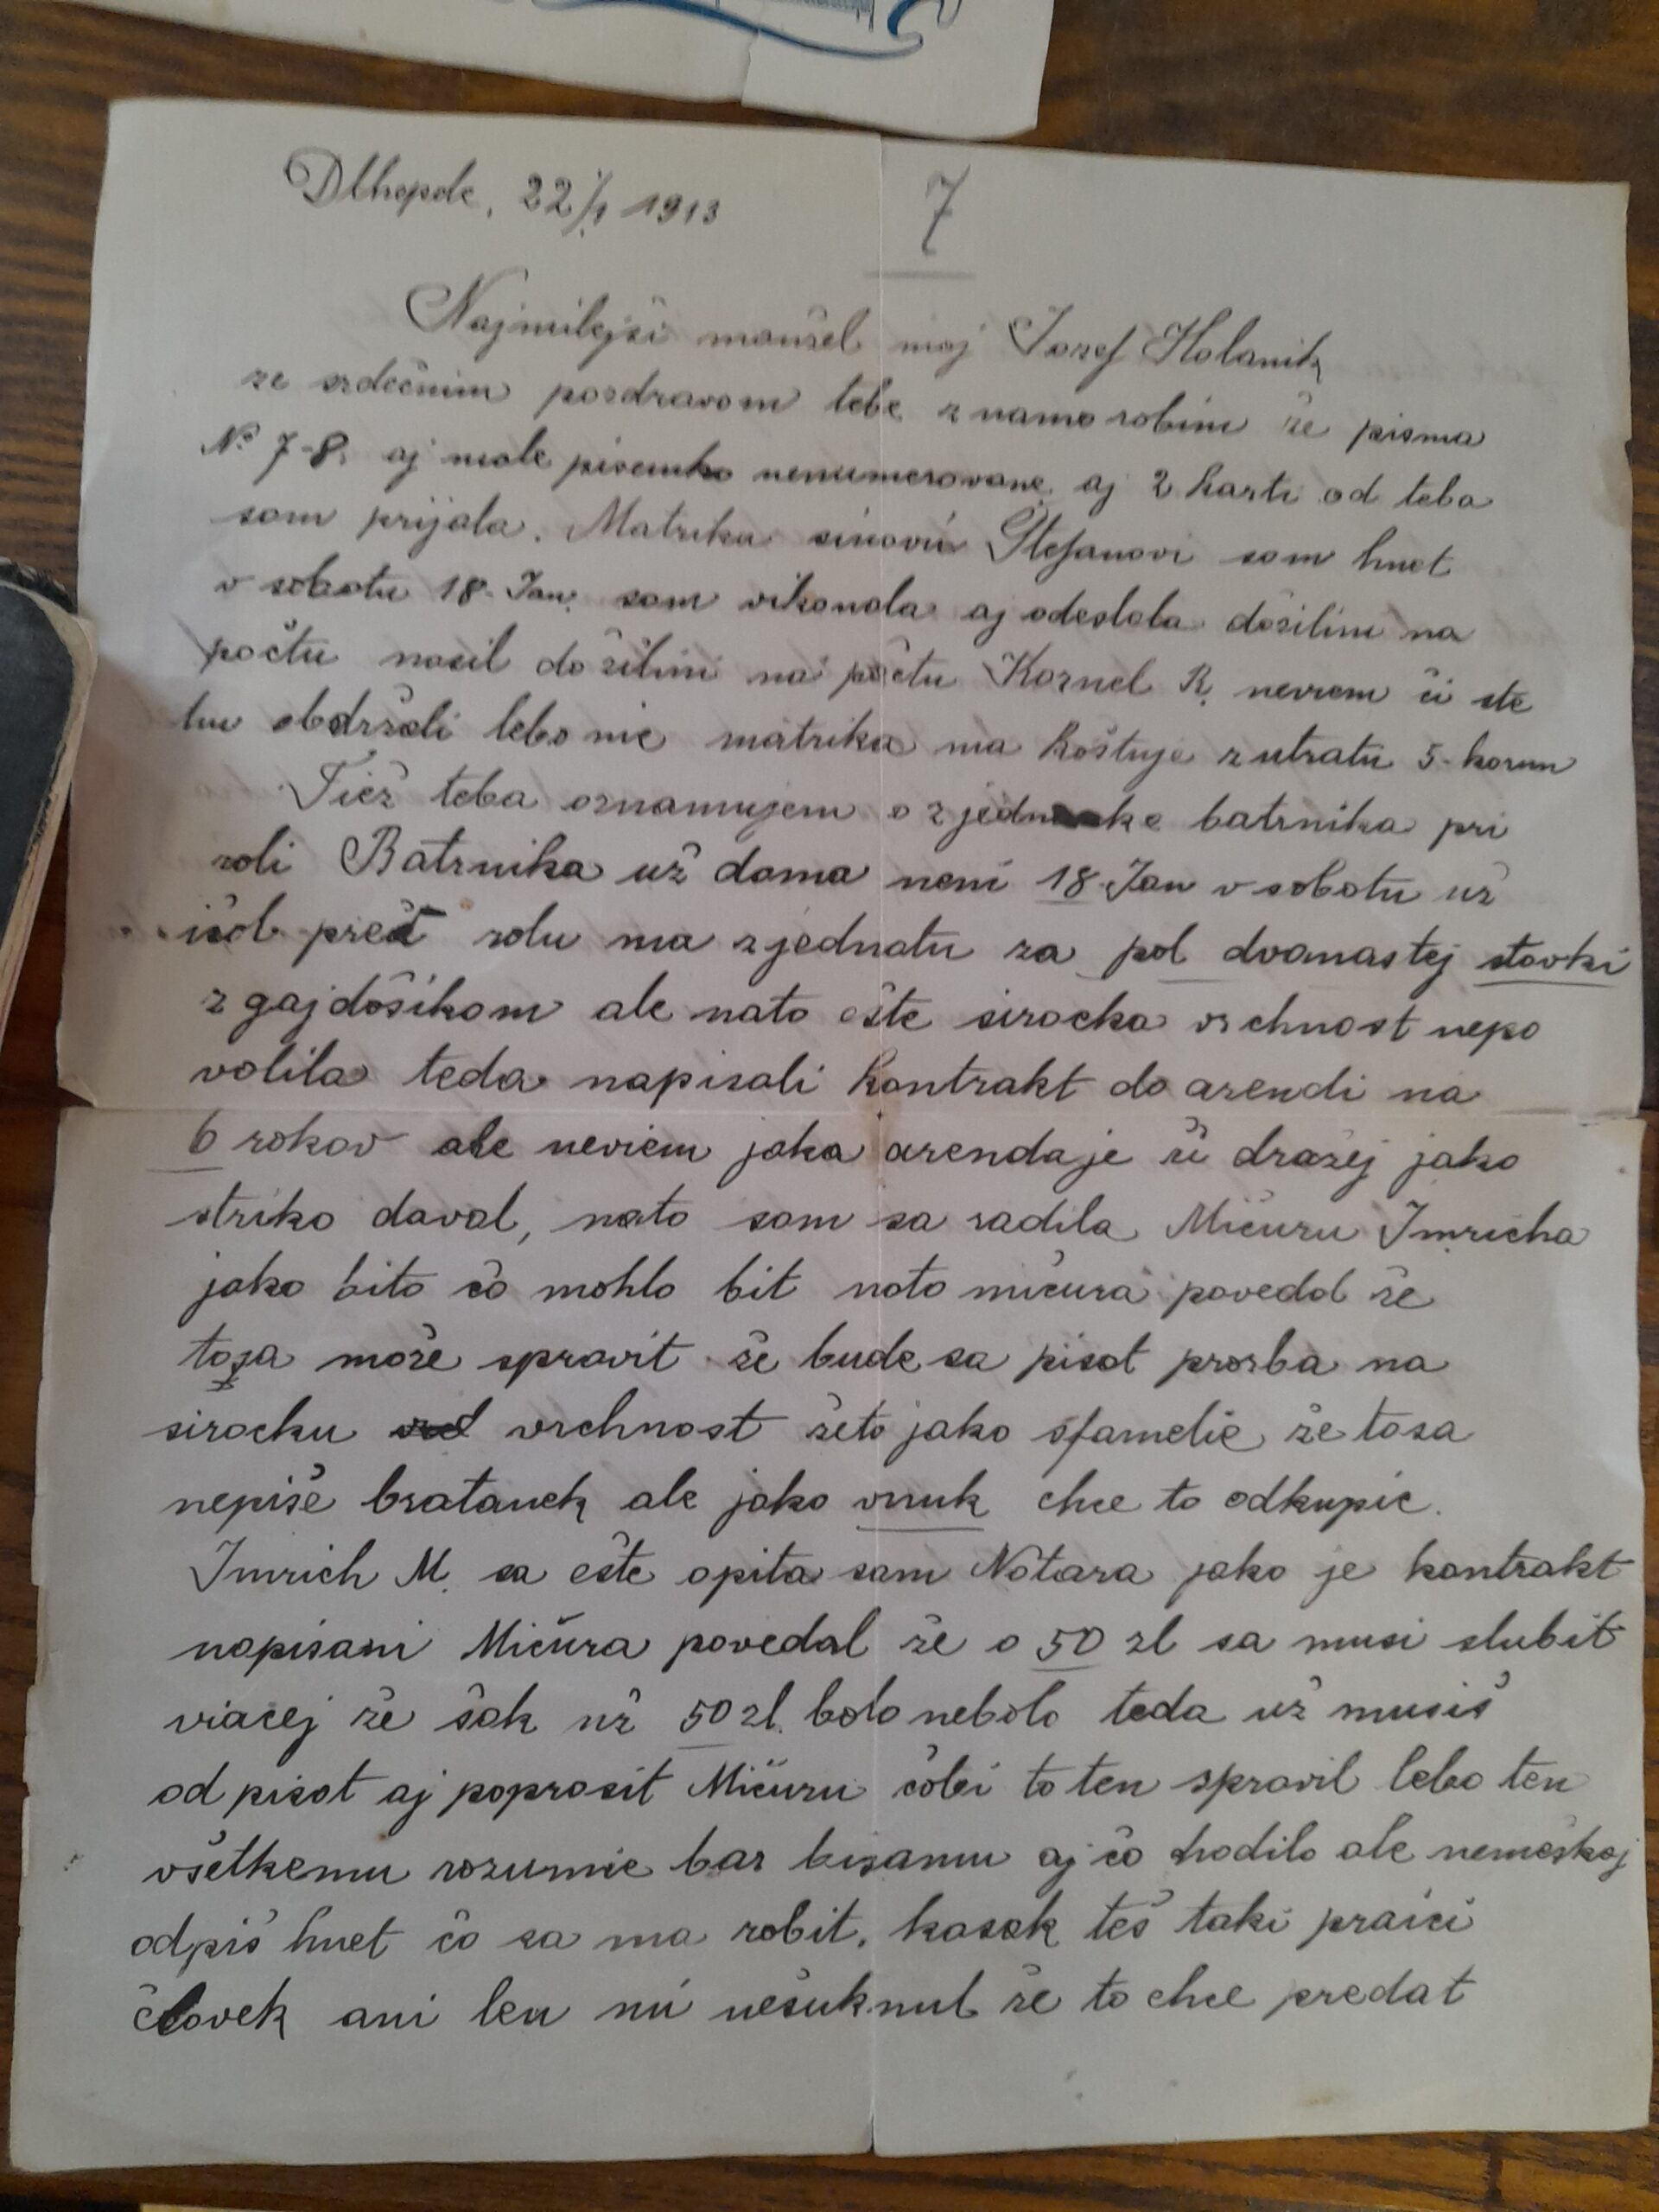 Dlhepole, 22/1 1913
7
Najmilejši manžel moj Jozef Holanik
ze srdečnim pozdravom tebe znamo robim že pisma
No 7-8. aj male pisemko nenumerovane aj 2 karti od teba
som prijala. Matriku sinovú Štefanovi som hnet
v sobotu 18. Jan. som vikonala aj odeslala do žilini na
poštu nosil do žilini na poštu Kornel R. neviem či ste
hu obdržali lebo nie matrika ma koštuje z utratu 5-korun
Tiež teba oznamujem o zjednanke batrnika pri
roli Batrnika už doma neni 18 Jan v sobotu už
išol preč rolu ma zjednatu za pol dvanastej stovki
z gajdošikom ale nato ešte sirocka vrchnost nepo
volila teda napisali kontrakt do arendi na
6 rokov ale neviem jaka arenda je či dražej jako
striko daval, nato som sa radila Mičuru Imricha
jako bito čo mohlo bit nato mičura povedal že
tosa može spravit že bude sa pisat prozba na
sirocku vrchnost žeto jako sfamelie že tosa
nepiše bratanek ale jako vnuk chce to odkupic.
Imrich M. sa ešte opita sam Notara jako je kontrakt
napisani Mičura povedal že o 50 zl sa musi slubit
viacej že šak už 50 zl. bolo nebolo teda už musiš
odpisat aj poprosit Mičuru čobi to ten spravil lebo ten
všetkemu rozumie bar bisamu aj čo hodilo ale nemeškaj
odpiš hnet čo sa ma robit. kasak teš taki praici
človek ani len nú nešuknul že to chce predat